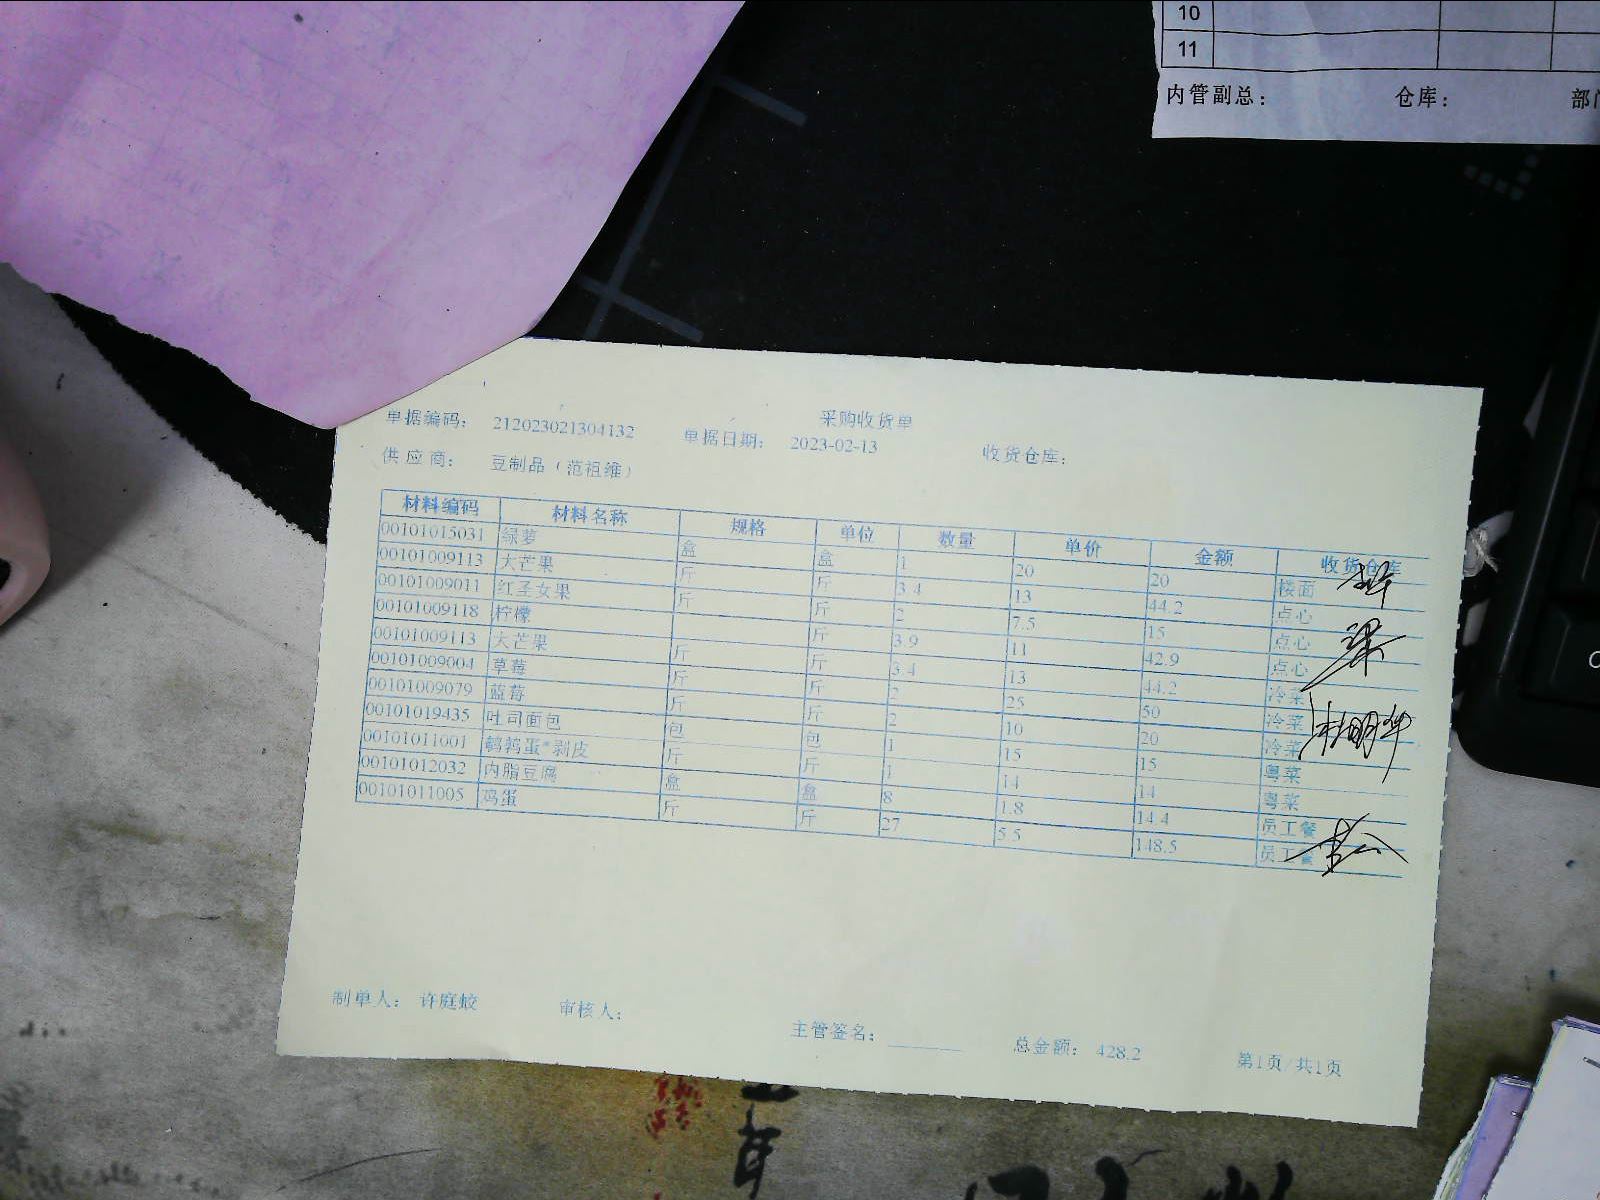 10
11
内管副总： 仓库： 部门
采购收货单
单据编码： 212023021304132 单据日期： 2023-02-13 收货仓库：
供应商： 豆制品（范祖维）
材料编码 材料名称 规格 单位 数量 单价 金额 收货仓库
00101015031 绿萝 盒 盒 1 20 20 楼面
00101009113 大芒果 斤 斤 3.4 13 44.2 点心
00101009011 红圣女果 斤 斤 2 7.5 15 点心
00101009118 柠檬 斤 3.9 11 42.9 点心
00101009113 大芒果 斤 斤 3.4 13 44.2 冷菜
00101009004 草莓 斤 斤 2 25 50 冷菜
00101009079 蓝莓 斤 斤 2 10 20 冷菜
00101019435 吐司面包 包 包 1 15 15 粤菜
00101011001 鹌鹑蛋*剥皮 斤 斤 1 14 14 粤菜
00101012032 内脂豆腐 盒 盒 8 1.8 14.4 员工餐
00101011005 鸡蛋 斤 斤 27 5.5 148.5 员工餐
制单人： 许庭蛟 审核人： 主管签名： 总金额： 428.2 第1页/共1页